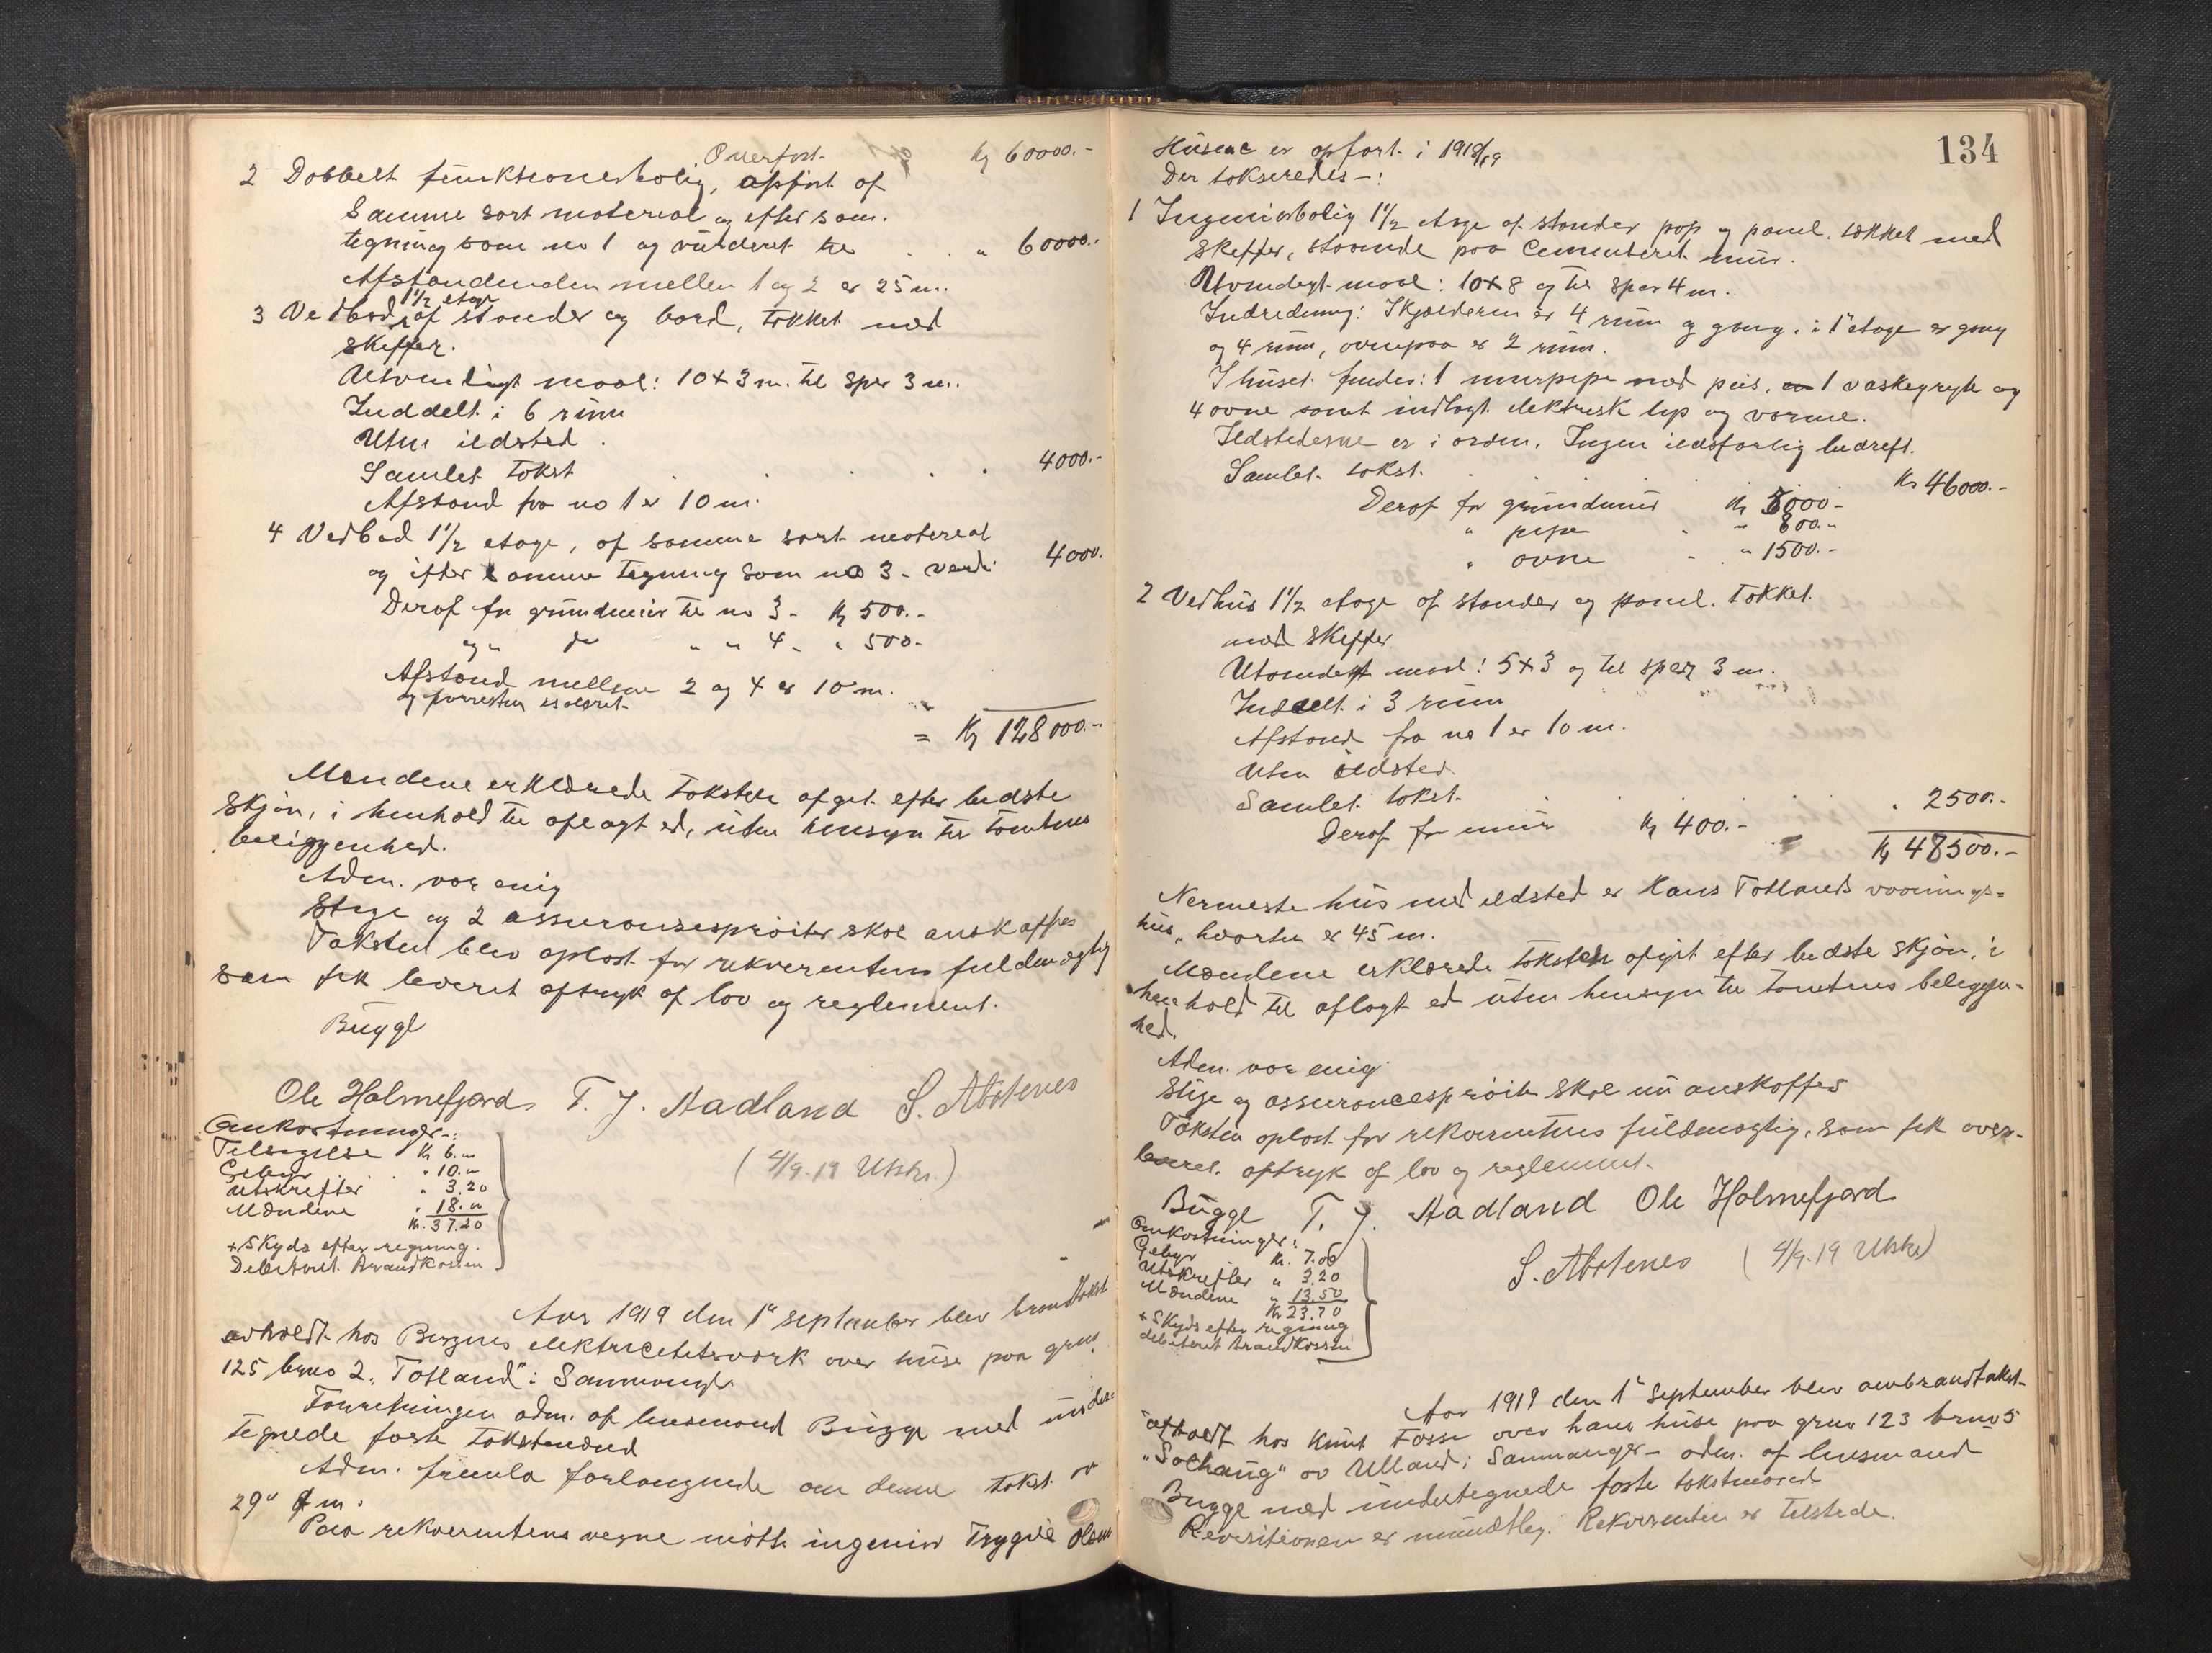 Overført. Kr 60000.-
2 Dobbelt funktionærbolig, opført af
samme sort material og efter sam.
tegning som no 1 og vurderet til . . " 60000.-
Afstanden mellem 1 og 2 er 25 m.
1½ etage
3 Vedbod, af stander og bord, tækket med
skiffer.
Utvendigt maal: 10 x 3 m. til sper 3 m.
Inddelt i 6 rum
Uten ildsted.
Samlet takst . . . . 4000.-
Afstand fra no 1 er 10 m.
4 Vedbod 1½ etage, af samme sort material
og efter samme tegning som no 3 - verdi 4000.
Deraf for grundmur til no 3 - Kr 500.-
og " do " " 4 - " 500.-
Afstand mellem 2 og 4 er 10 m.
og forresten isoleret.
= Kr 128000.-
Mændene erklærede taksten afgit efter bedste
skjøn, i henhold til aflagt ed, uten hensyn til tomtens
beliggenhed.
Adm. var enig
Stige og 2 assuransesprøiter skal anskaffes
Taksten blev oplæst for rekvirentens fuldmægtig
som fik leveret aftryk af lov og reglement.
Bugge
Ole Holmefjord T. J. Aadland S. Abotenes
(4/9.19 Utskr.)
Omkostninger:
Tilsigelse Kr 6.00
Gebyr " 10.00
Utskrifter " 3.20
Mændene " 18.00
Kr. 37.20
+ Skyds efter regning.
Debiteret Brandkassen
Aar 1919 den 1ste september blev brandtakst
avholdt hos Bergens elektricitetsverk over huse paa grno
125 brno 2, "Totland" i Samnanger
Forretningen adm. af lensmand Bugge med under=
tegnede faste takstmænd
Adm. fremla forlangende om denne takst av
29de d.m.
Paa rekvirentens vegne møtte ingeniør Trygve Olsen
134
Husene er opført i 1918/19
Der takseredes -:
1 Ingeniørbolig 1½ etage af stander pap og panel. tækket med
skiffer, staaende paa cementeret mur.
Utvendigt maal: 10 x 8 og til sper 4 m.
Indredning: I kjælderen er 4 rum og gang, i 1ste etage er gang
og 4 rum, ovenpaa er 2 rum.
I huset findes: 1 murpipe med peis, 1 vaskegryte og
4 ovne samt indlagt elektrisk lys og varme.
Ildstederne er i orden. Ingen ildsfarlig bedrift.
Samlet takst. Kr 46000.-
Deraf for grundmur Kr 5000.-
" pipe " 800.-
" ovne " 1500.-
2 Vedhus 1½ etage af stander og panel. tækket
med skiffer
Utvendigt maal: 5 x 3 og til sper 3 m.
Inddelt i 3 rum
Afstand fra no 1 er 10 m.
Uten ildsted
Samlet takst. . . . . " 2500.-
Deraf for mur Kr 400.-
Kr 48500.-
Nærmeste hus med ildsted er Hans Totlands vaanings=
hus, hvortil er 45 m.
Mændene erklærede taksten afgit efter bedste skjøn, i
henhold til aflagt ed uten hensyn til tomtens beliggen=
hed.
Adm. var enig.
Stige og assurancesprøite skal nu anskaffes
Taksten oplæst for rekvirentens fuldmægtig, som fik over-
leveret aftryk af lov og reglement.
Bugge T. J. Aadland Ole Holmefjord
S. Abotenes (4/9.19 Utskr)
Omkostninger:
Gebyr Kr. 7.00
Utskrifter " 3.20
Mændene " 13.50
Kr 23.70
+ Skyds efter regning
debiteret brandkassen
Aar 1919 den 1ste September blev ombrandtakst
afholdt hos Knut Fosse over hans huse paa grno 123 brno 5
"Solhaug" av Ulland i Samnanger - adm. af lensmand
Bugge med undertegnede faste takstmænd
Rekvisitionen er mundtlig. Rekvirenten er tilstede.